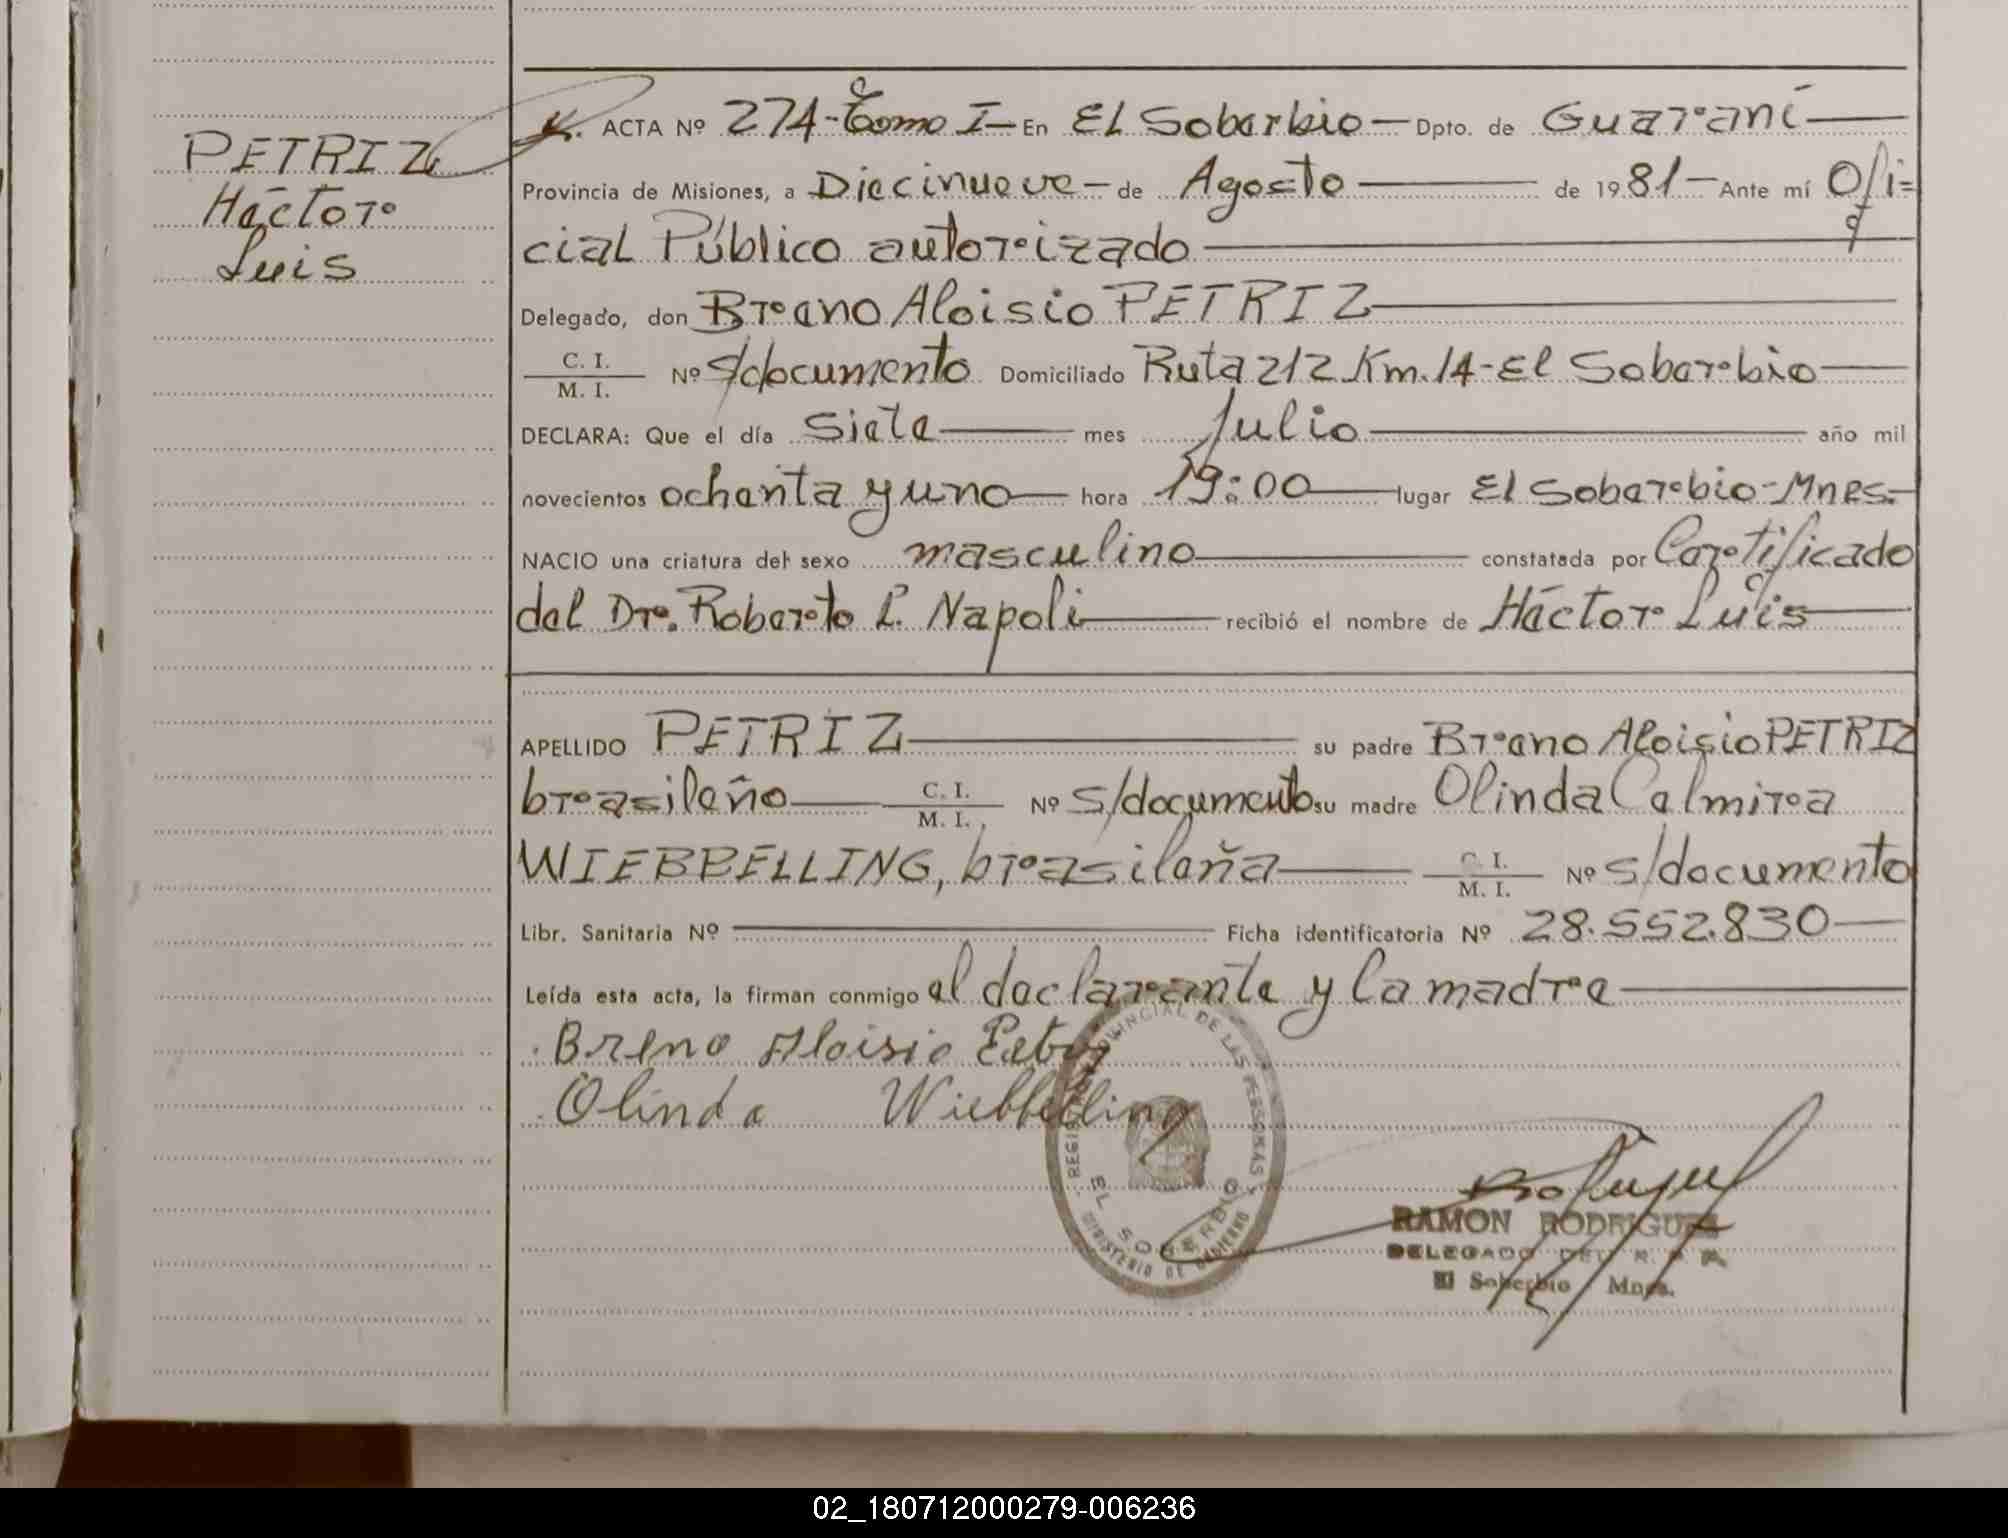 PETRIZ
Héctor
Luis
ACTA Nº 274-Tomo I- En El Soberbio- Dpto. de Guaraní
Provincia de Misiones, a Diecinueve- de Agosto de 1981- Ante mí Ofi=
cial Público autorizado
Delegado, don Breno Aloisio PETRIZ
C. I.
M. I. Nº s/documento Domiciliado Ruta 212 Km. 14-El Soberbio
DECLARA: Que el día siete mes Julio año mil
novecientos ochenta y uno hora 19:00 lugar El Soberbio-Mnes.-
NACIO una criatura del sexo masculino constatada por Certificado
del Dr. Roberto L. Napoli recibió el nombre de Héctor Luis
APELLIDO PETRIZ su padre Breno Aloisio PETRIZ
brasileño C. I.
M. I. Nº s/documento su madre Olinda Celmira
WIEBBELLING, brasileña C. I.
M. I. Nº s/documento
Libr. Sanitaria Nº Ficha identificatoria Nº 28.552.830
Leída esta acta, la firman conmigo el declarante y la madre
Breno Aloisio
Olinda Wiebbelling
REGISTRO PROVINCIAL DE LAS PERSONAS
EL SOBERBIO
MINISTERIO DE GOBIERNO
RAMON RODRIGUEZ
DELEGADO DEL R. P. P.
El Soberbio Mnes.
02_180712000279-006236